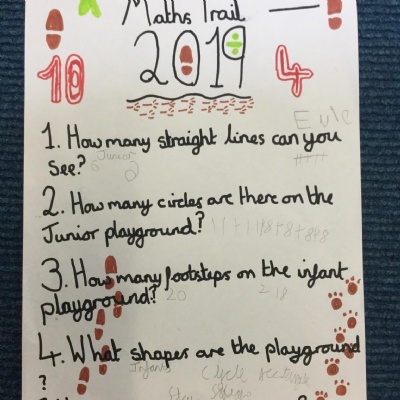 Maths Trail
2019
10
4
1. How many straight lines can you
see?
Junior
6
2. How many circles are there on the
Junior playground?
3. How many footsteps on the infant
playground? 20
2 18
4. What shapes are the playground
?
Infants